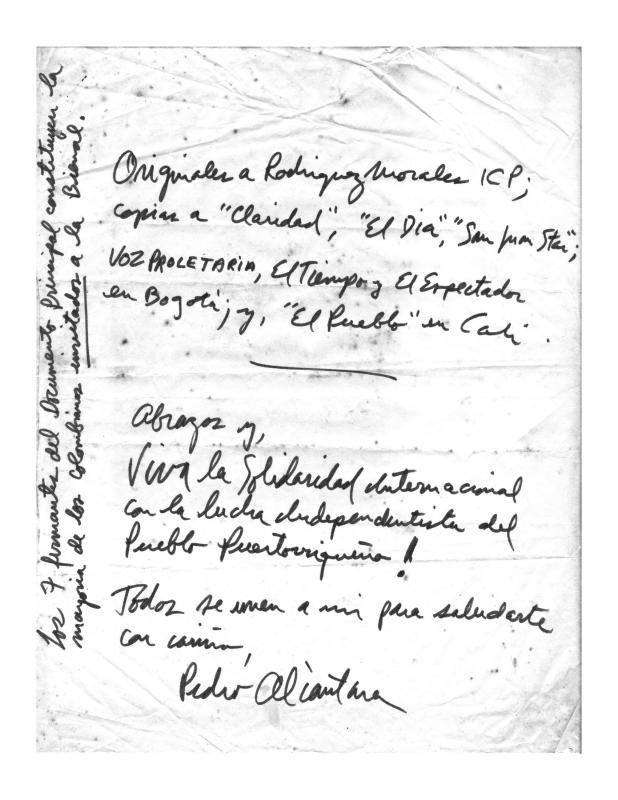 Originales a Rodriguez Morales ICP;
copias a "Claridad", "El Dia", "San Juan Star";
VOZ PROLETARIA, El Tiempo y El Espectador
en Bogotá; y, "El Pueblo" en Cali.
Abrazos y,
Viva la Solidaridad Internacional
con la lucha Independentista del
Pueblo Puertorriqueño!
Todos se unen a mi para saludarte
con cariño,
Pedro Alcantara
Los 7 firmantes del Documento Principal constituyen la
mayoria de los Colombianos invitados a la Bienal.